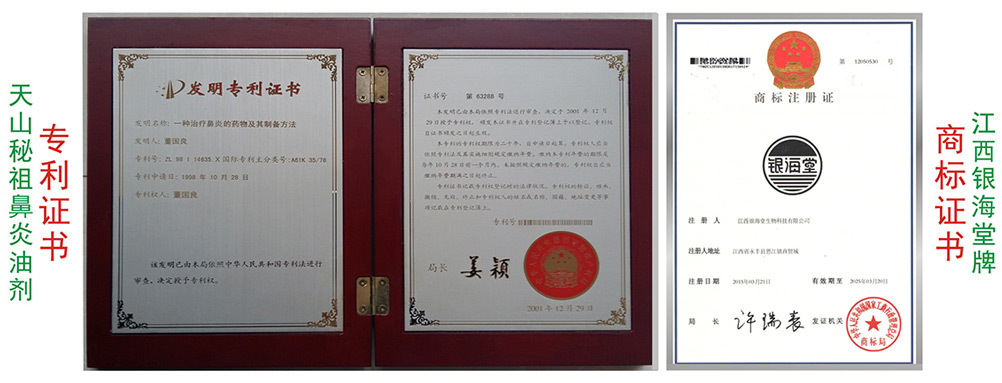 天山秘祖鼻炎油剂
专利证书
发明专利证书
发明名称: 一种治疗鼻炎的药物及其制备方法
发明人: 董国良
专利号: ZL 98 1 14635. X 国际专利主分类号: A61K 35/78
专利申请日: 1998 年 10 月 28 日
专利权人: 董国良
该发明已由本局依照中华人民共和国专利法进行
审查, 决定授予专利权。
证书号 第 63288 号
本发明已由本局依照专利法进行审查, 决定于 2001 年 12 月
29 日授予专利权, 颁发本证书并在专利登记簿上予以登记。专利权
自证书颁发之日起生效。
本专利的专利权期限为二十年, 自申请日起算。专利权人应当
依照专利法及其实施细则规定缴纳年费。缴纳本专利年费的期限是
每年 10 月 28 日前一个月内。未按照规定缴纳年费的, 专利权自应当
缴纳年费期满之日起终止。
专利证书记载专利权登记时的法律状况。专利权的转让、继承、
撤销、无效、终止和专利权人的姓名或名称、国籍、地址变更等事
项记载在专利登记簿上。
专利号
局长 姜颖
2001 年 12 月 29 日
第 12050530 号
商标注册证
银海堂
注册人 江西银海堂生物科技有限公司
注册人地址 江西省永丰县恩江镇商贸城
注册日期 2015年03月21日 有效期至 2025年03月20日
局长 许瑞表 发证机关
中华人民共和国国家工商行政管理总局
商标局
江西银海堂牌
商标证书